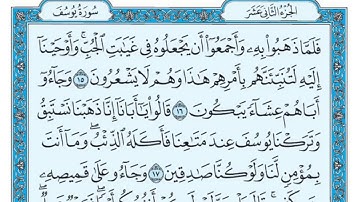 سُورَةُ يُوسُفَ الجُزءُ الثَّانِي عَشَرَ
فَلَمَّا ذَهَبُوا۟ بِهِۦ وَأَجْمَعُوٓا۟ أَن يَجْعَلُوهُ فِى غَيَـٰبَتِ ٱلْجُبِّ ۚ وَأَوْحَيْنَآ
إِلَيْهِ لَتُنَبِّئَنَّهُم بِأَمْرِهِمْ هَـٰذَا وَهُمْ لَا يَشْعُرُونَ ١٥ وَجَآءُوٓ
أَبَاهُمْ عِشَآءً يَبْكُونَ ١٦ قَالُوا۟ يَـٰٓأَبَانَآ إِنَّا ذَهَبْنَا نَسْتَبِقُ
وَتَرَكْنَا يُوسُفَ عِندَ مَتَـٰعِنَا فَأَكَلَهُ ٱلذِّئْبُ ۖ وَمَآ أَنتَ
بِمُؤْمِنٍ لَّنَا وَلَوْ كُنَّا صَـٰدِقِينَ ١٧ وَجَآءُو عَلَىٰ قَمِيصِهِۦ